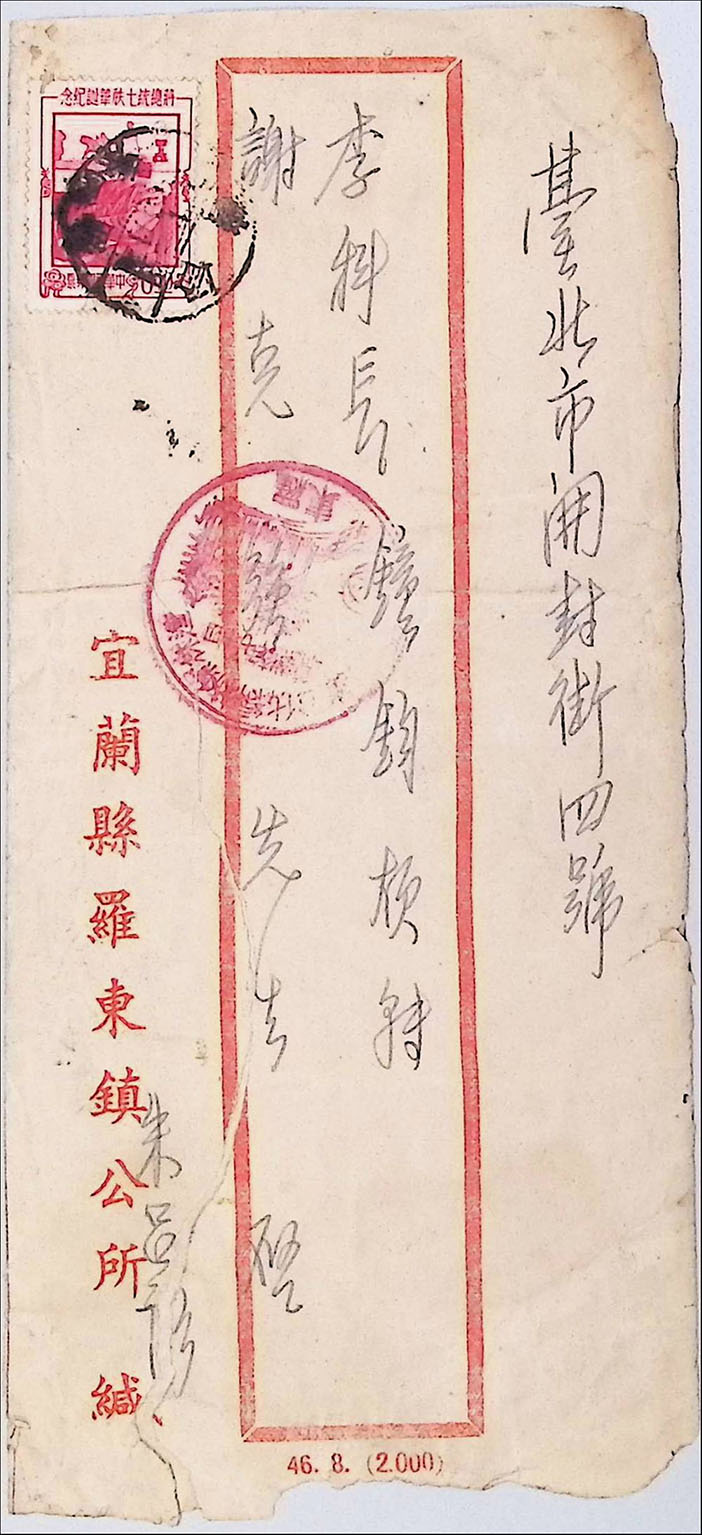 臺北市開封街四號
李科長鐘鈞核轉
謝克 先生 啓
宜蘭縣羅東鎮公所 緘
朱呂
46. 8. (2.000)
蔣總統七秩華誕紀念
羅東